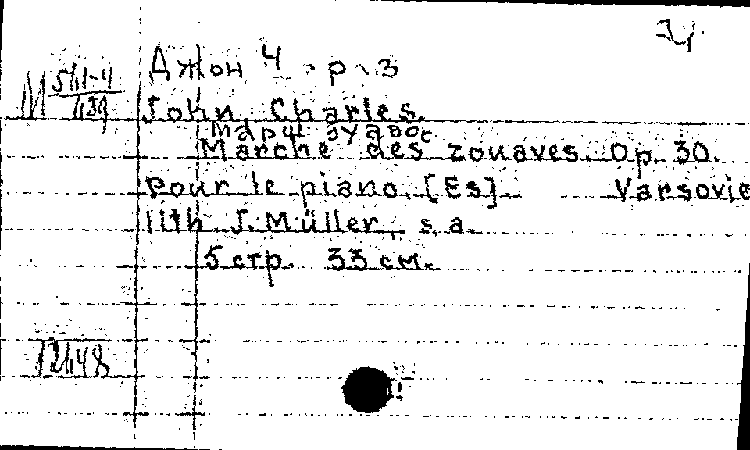 Джон Ч р 3
М 511-4
John, Charles.
Марш зуавос
Marche des zouaves. Op. 30.
pour le piano. [Es] Varsovie
lith J. Müller, s. a.
5 стр. 33 см.
12448